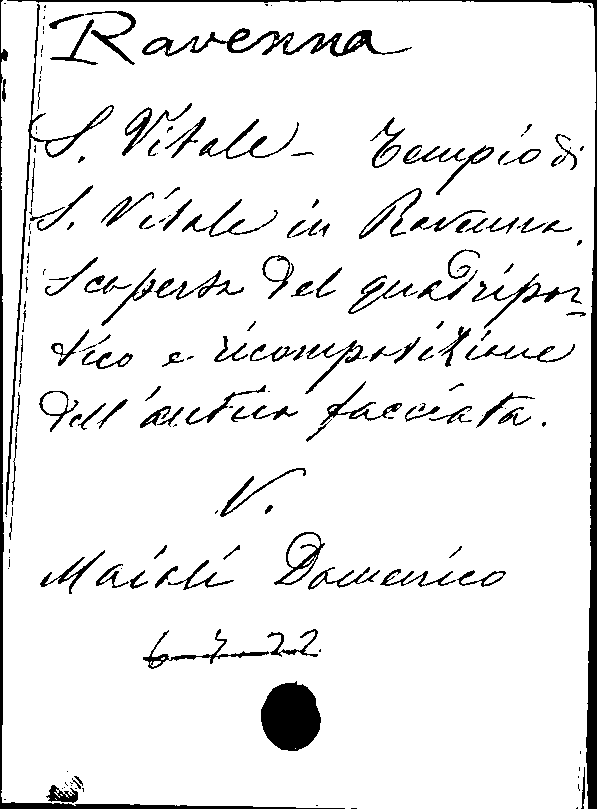 Ravenna
S. Vitale - Tempio di
S. Vitale in Ravenna.
Scoperta del quadripor-
tico e ricomposizione
dell'antica facciata.
V.
Maioli Domenico
6 7 22